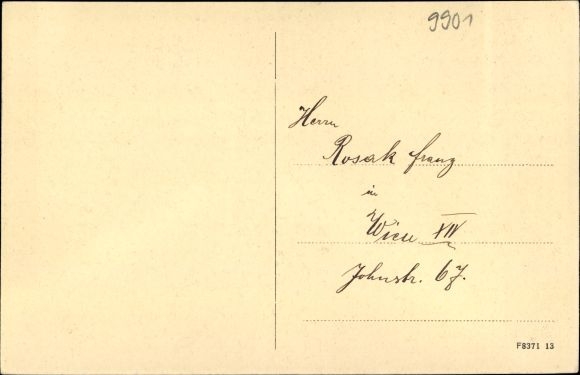 9901
Herrn
Rosak Franz
in
Wien XIV
Johnstr. 67.
F8371 13